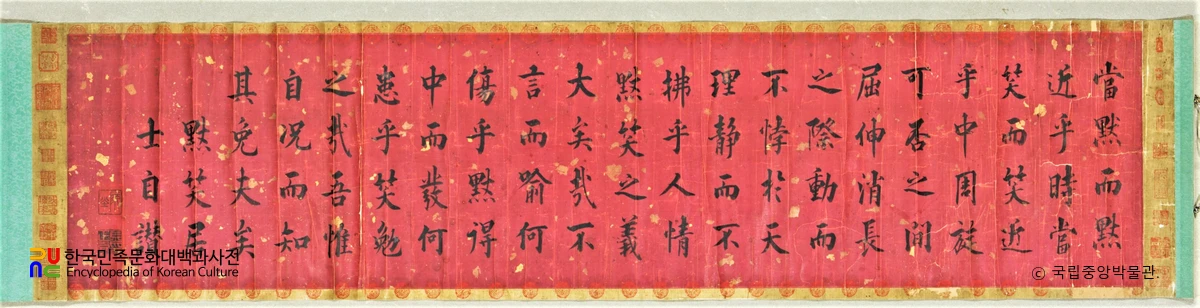 當默而默
近乎時當
笑而笑近
乎中周旋
可否之間
屈伸消長
之際動而
不悖於天
理靜而不
拂乎人情
默笑之義
大矣哉不
言而喻何
傷乎默得
中而發何
患乎笑勉
之哉吾惟
自況而知
其免夫矣
默笑居
士自讚
한국민족문화대백과사전
Encyclopedia of Korean Culture
© 국립중앙박물관.